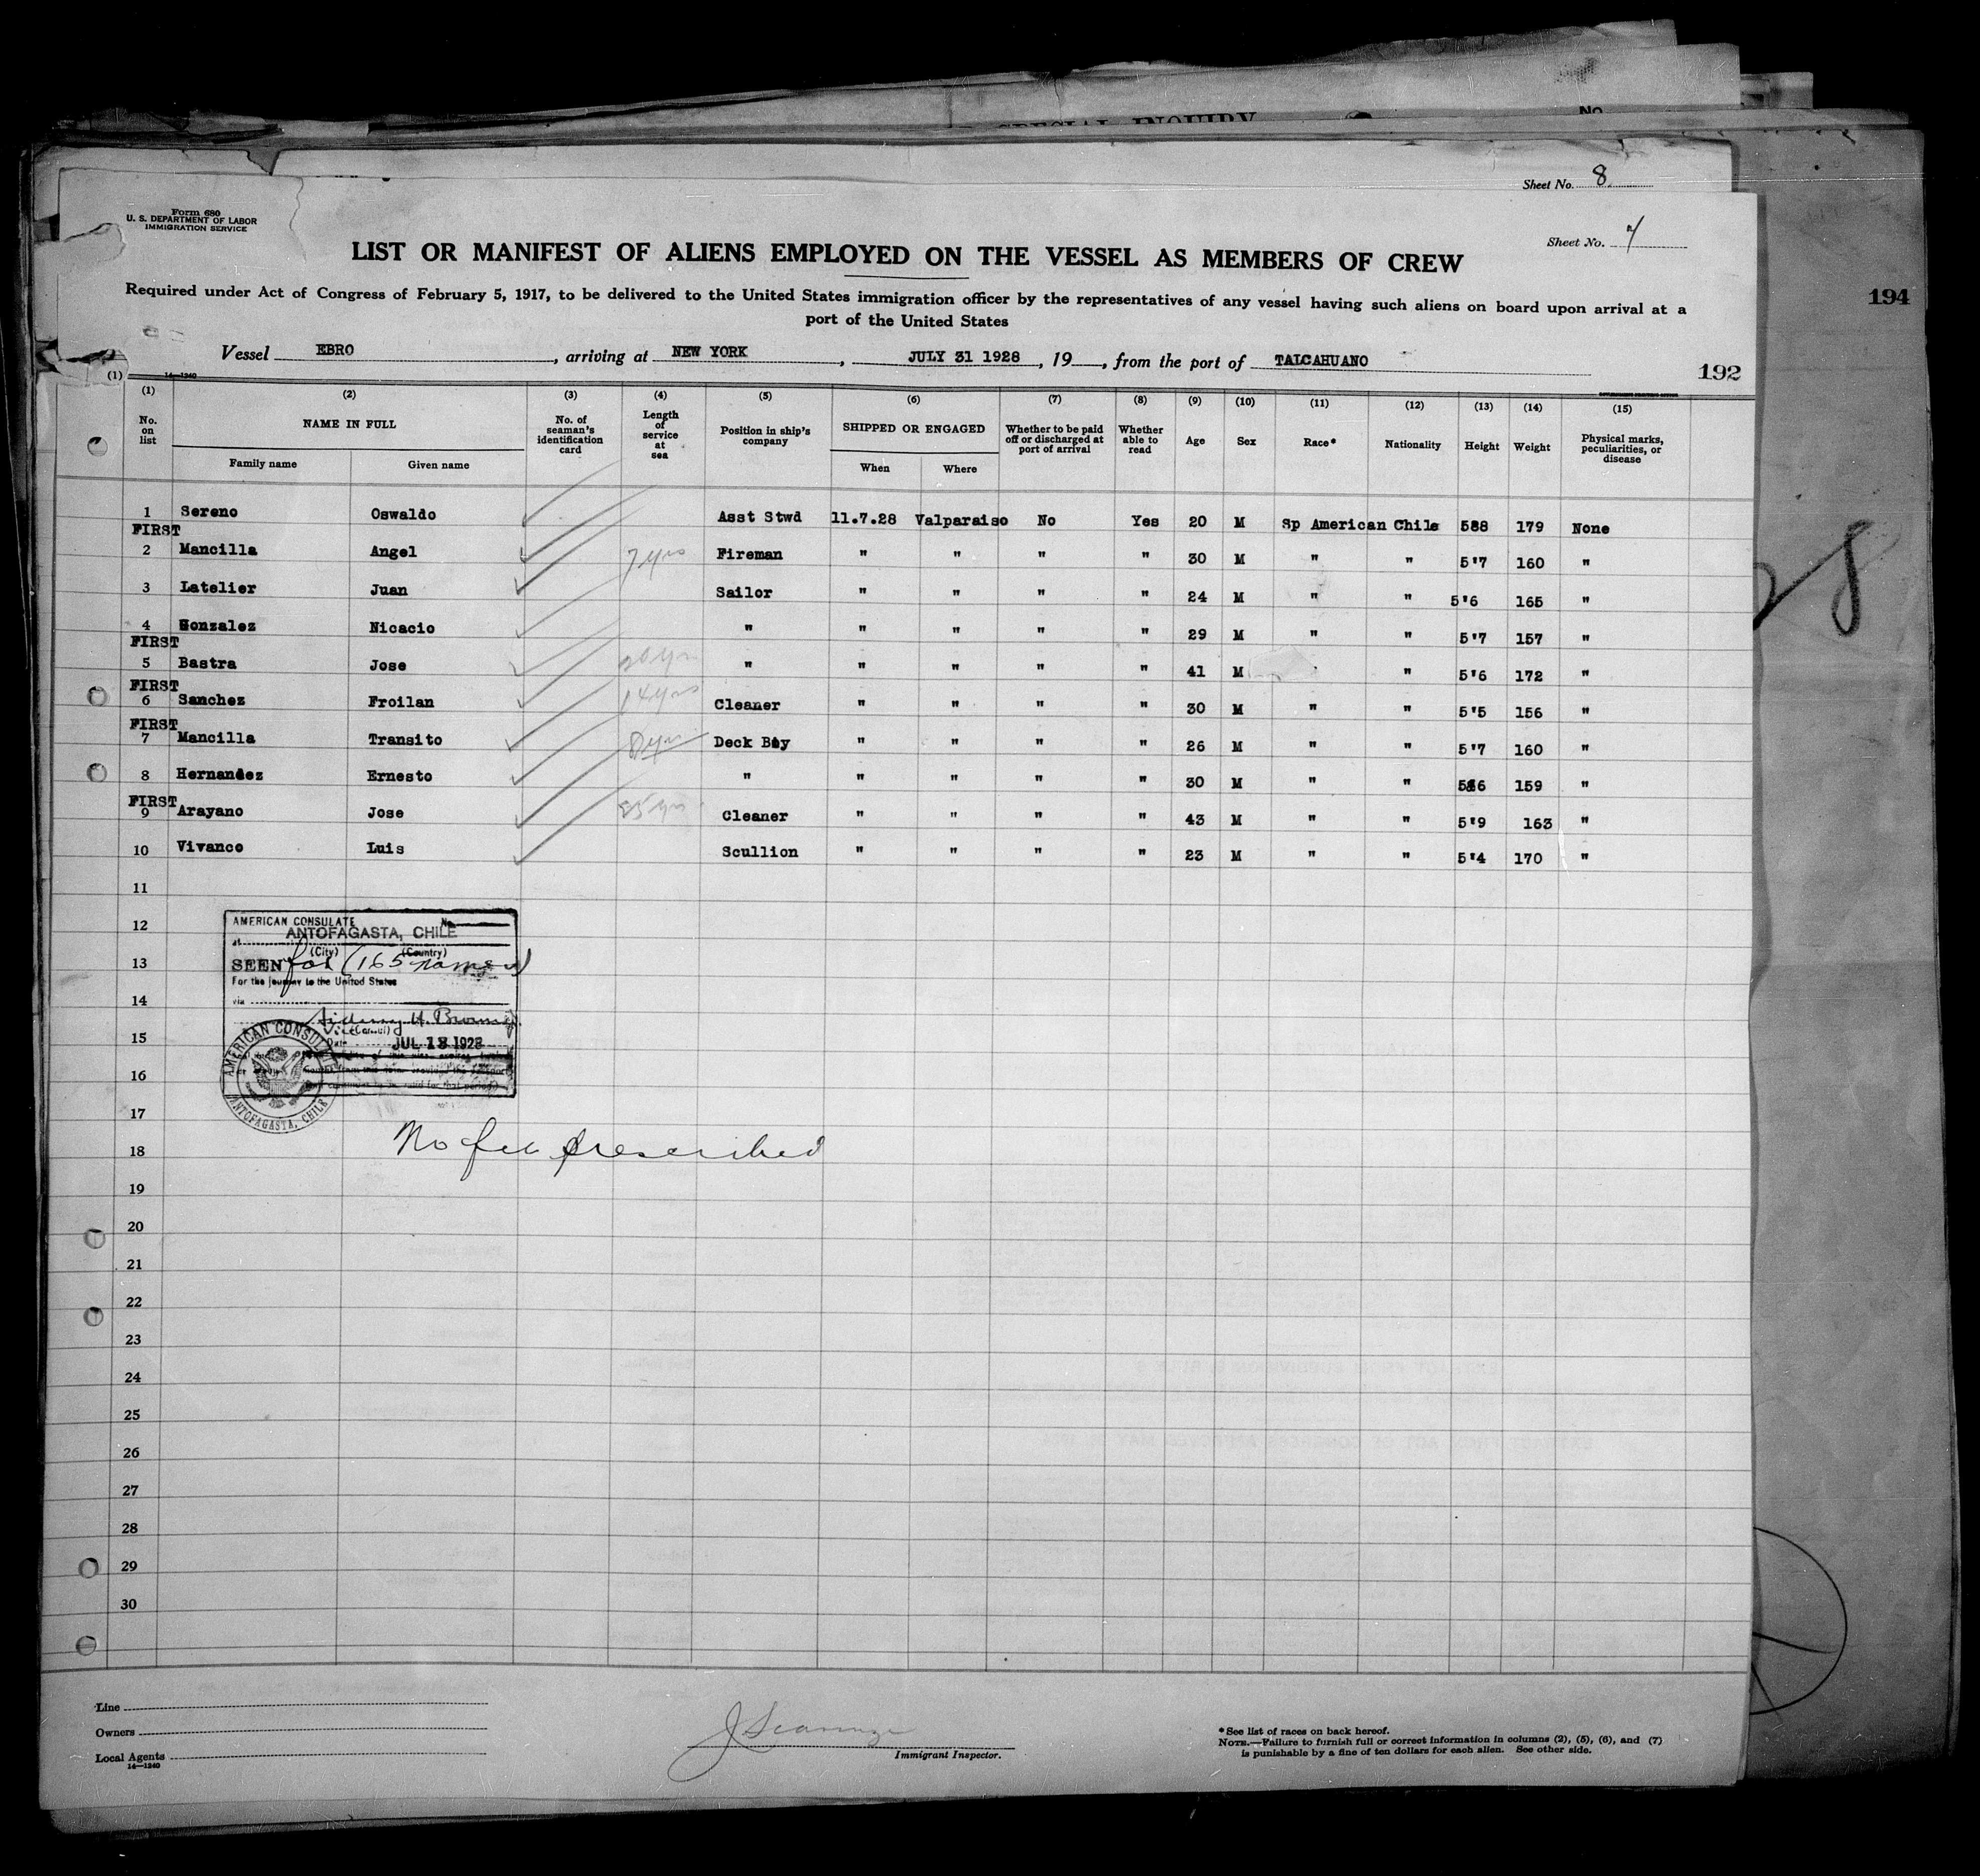 SPECIAL INQUIRY
No
Sheet No. 8
Form 680
U. S. DEPARTMENT OF LABOR
IMMIGRATION SERVICE
Sheet No. 7
LIST OR MANIFEST OF ALIENS EMPLOYED ON THE VESSEL AS MEMBERS OF CREW
194
Required under Act of Congress of February 5, 1917, to be delivered to the United States immigration officer by the representatives of any vessel having such aliens on board upon arrival at a
port of the United States
Vessel EBRO, arriving at NEW YORK, JULY 31 1928, 19, from the port of TALCAHUANO
192
(1) 14—1240
(1) (2) (3) (4) (5) (6) (7) (8) (9) (10) (11) (12) (13) (14) (15)
No. on list NAME IN FULL No. of seaman's identification card Length of service at sea Position in ship's company SHIPPED OR ENGAGED Whether to be paid off or discharged at port of arrival Whether able to read Age Sex Race* Nationality Height Weight Physical marks, peculiarities, or disease
Family name Given name When Where
1 Sereno Oswaldo Asst Stwd 11.7.28 Valparaiso No Yes 20 M Sp American Chile 588 179 None
FIRST
2 Mancilla Angel 7 yrs Fireman " " " " 30 M " " 5'7 160 "
3 Latelier Juan Sailor " " " " 24 M " " 5'6 165 "
4 Gonzalez Nicacio " " " " " 29 M " " 5'7 157 "
FIRST
5 Bastra Jose 20 yrs " " " " " 41 M " 5'6 172 "
FIRST
6 Sanchez Froilan 14 yrs Cleaner " " " " 30 M " " 5'5 156 "
FIRST
7 Mancilla Transito 8 yrs Deck Boy " " " " 26 M " " 5'7 160 "
8 Hernandez Ernesto " " " " " 30 M " " 5'6 159 "
FIRST
9 Arayano Jose 25 yrs Cleaner " " " " 43 M " " 5'9 163 "
10 Vivanco Luis Scullion " " " " 23 M " " 5'4 170 "
11
12
13
14
15
16
17
18
19
20
21
22
23
24
25
26
27
28
29
30
AMERICAN CONSULATE No.
at ANTOFAGASTA, CHILE
(City) (Country)
SEEN for (165 names)
For the journey to the United States
via
Vice (Consul)
Date JUL 18 1928
AMERICAN CONSULATE
ANTOFAGASTA, CHILE
No fee prescribed
Line
Owners
Local Agents
14—1240
Immigrant Inspector.
*See list of races on back hereof.
NOTE.—Failure to furnish full or correct information in columns (2), (5), (6), and (7)
is punishable by a fine of ten dollars for each alien. See other side.